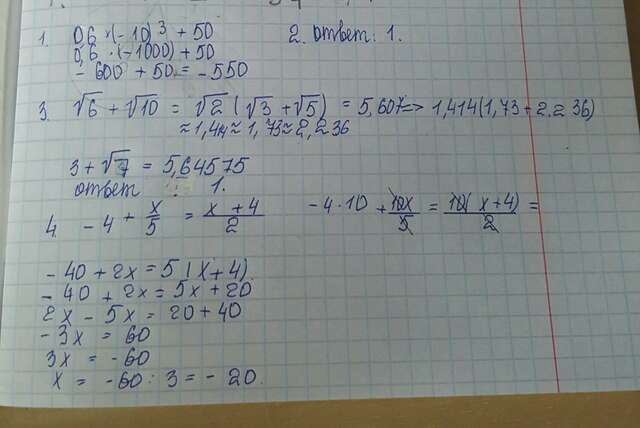 1. 0,6 · (-10)³ + 50
0,6 · (-1000) + 50
- 600 + 50 = - 550
2. ответ: 1.
3. √6 + √10 = √2 (√3 + √5) = 5,607 => 1,414(1,73 + 2.236)
≈ 1,41 ≈ 1,73 ≈ 2,236
3 + √7 = 5,64575
ответ : 1.
4 - 4 + x/5 = x + 4/2 - 4 · 10 + 10x/5 = 10(x + 4)/2 =
- 40 + 2x = 5 (x + 4)
- 40 + 2x = 5x + 20
2x - 5x = 20 + 40
- 3x = 60
3x = - 60
x = - 60 : 3 = - 20.